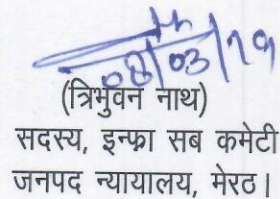 08/03/19
(त्रिभुवन नाथ)
सदस्य, इन्फ्रा सब कमेटी
जनपद न्यायालय, मेरठ।